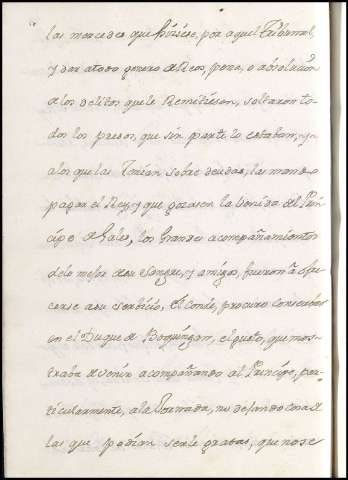 las mercedes que hiziese, por aquel Tribunal,
y dar atodo genero de Reos, pena, o absolucion
a los delitos que le Remitiesen, soltaron to-
dos los presos, que sin parte lo estaban, y
alos que las Tenian sobre deudas, las mando
pagar el Rey, y que gozasen la Venida del Prin-
cipe de Gales, los Grandes acompañamientos
delo mejor de su Sangre, y amigos, fueron a ofre-
cerse a su servicio, El Conde, procuro conservar
en el Duque de Boquingan, el gusto, que mos-
traba de venir acompañando al Principe, par-
ticularmente, a la Jornada, no dejando cosa de
las que podian serle gratas, que no se